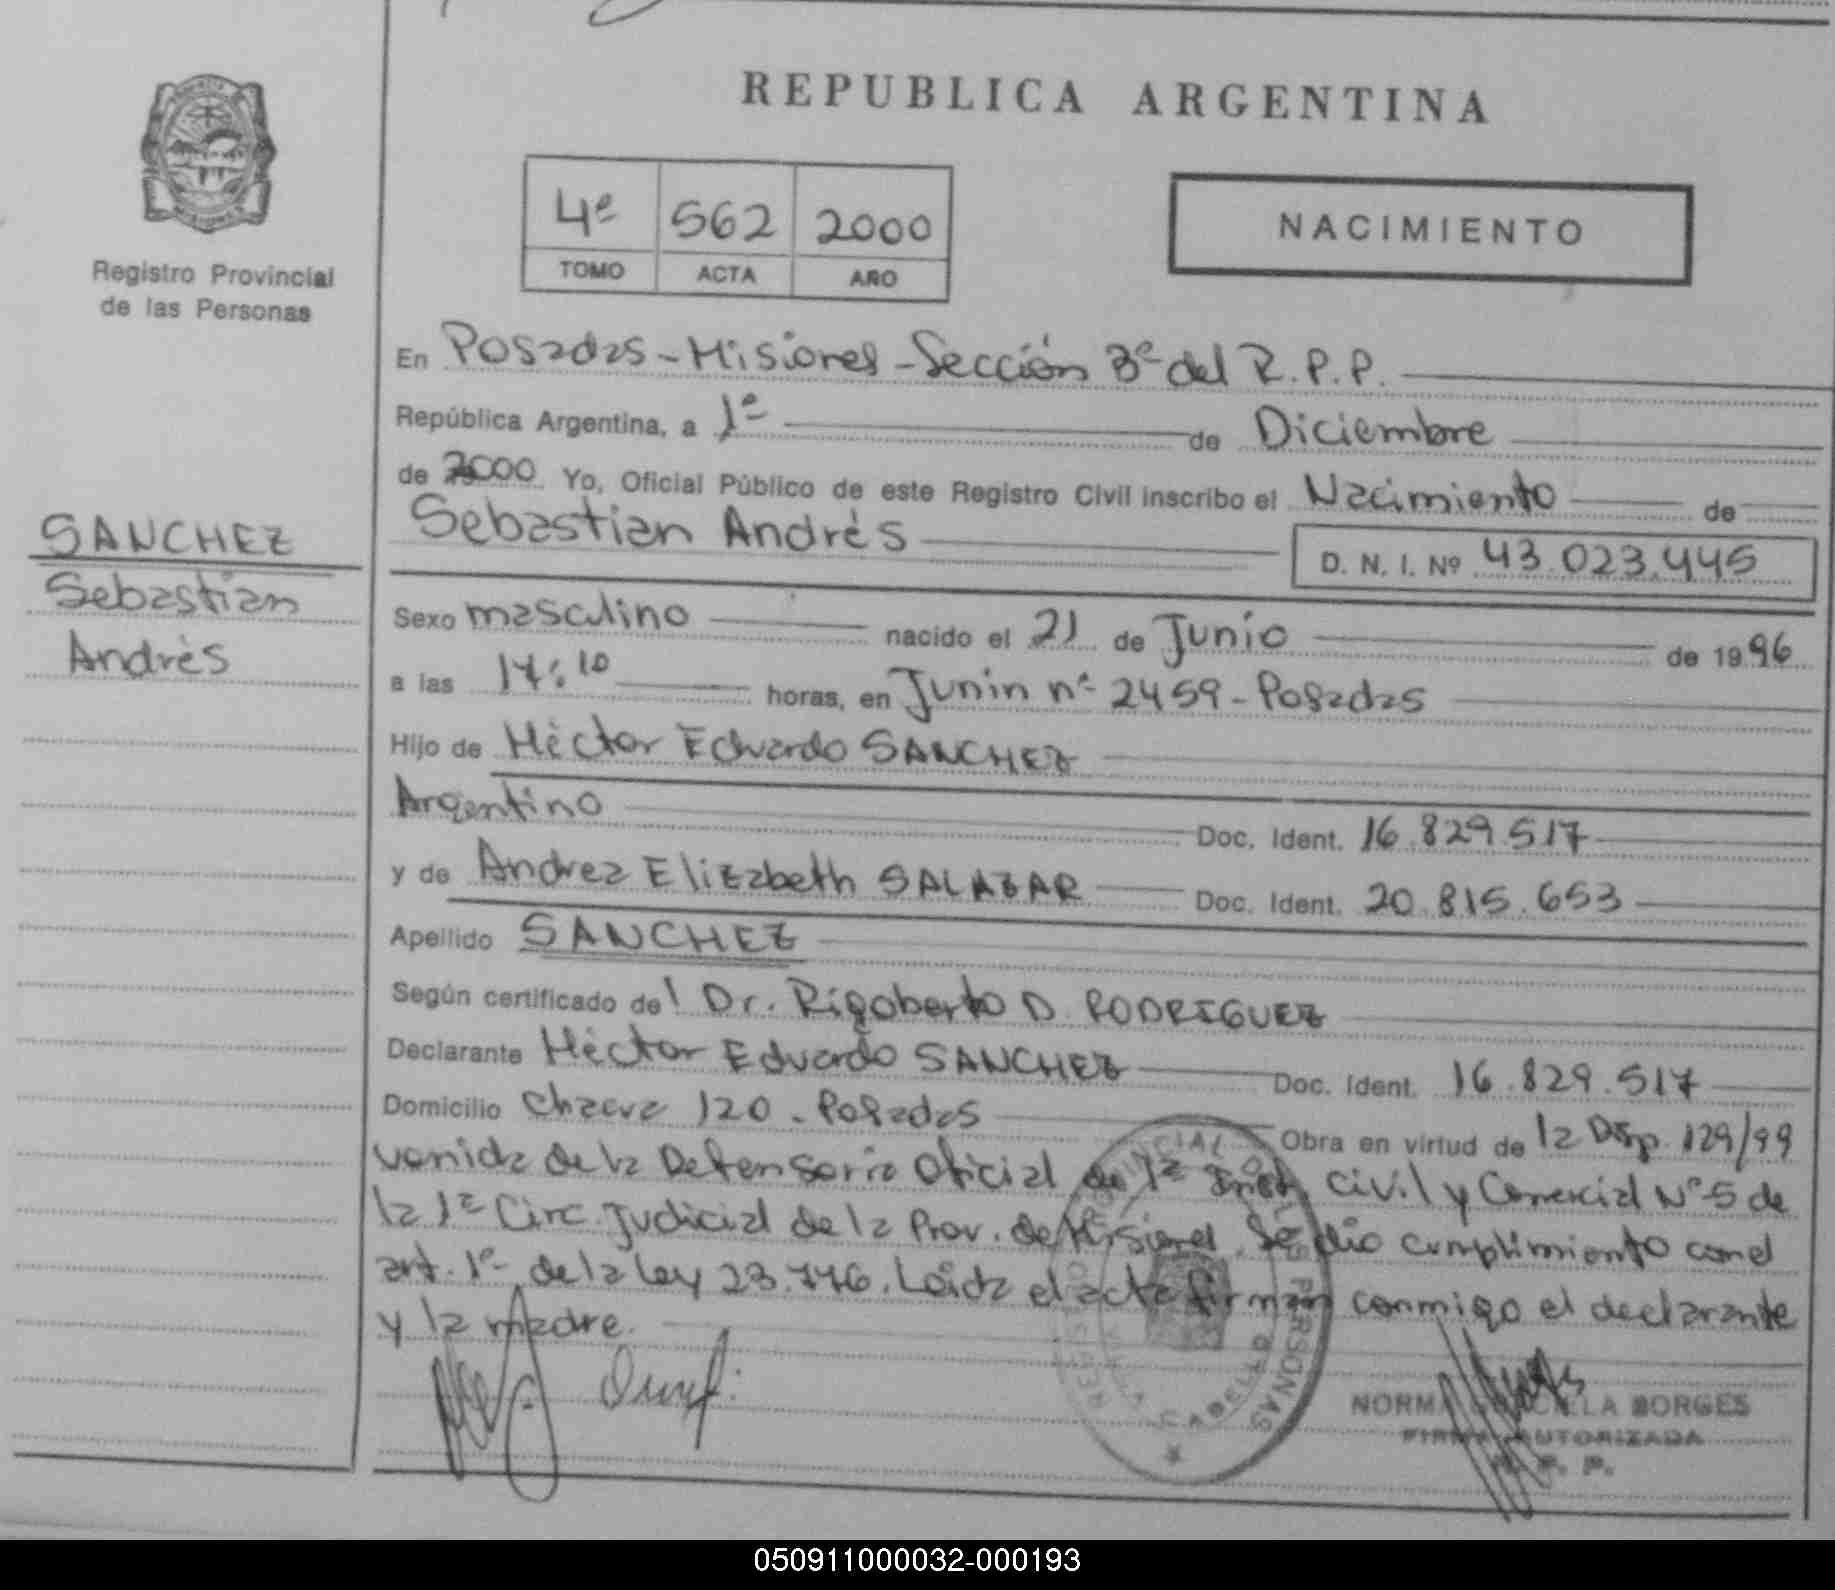 REPUBLICA ARGENTINA
4º 562 2000
TOMO ACTA AÑO
NACIMIENTO
Registro Provincial
de las Personas
SANCHEZ
Sebastian
Andrés
En Posadas - Misiones - Sección 3º del R.P.P.
República Argentina, a 1º de Diciembre
de 2000 Yo, Oficial Público de este Registro Civil inscribo el Nacimiento de
Sebastian Andrés D. N. I. Nº 43.023.445
Sexo masculino nacido el 21 de Junio de 1996
a las 17:10 horas, en Junin nº 2459 - Posadas
Hijo de Héctor Eduardo SANCHEZ
Argentino Doc. Ident. 16.829.517
y de Andrea Elizabeth SALAZAR Doc. Ident. 20.815.653
Apellido SANCHEZ
Según certificado del Dr. Rigoberto D. RODRIGUEZ
Declarante Héctor Eduardo SANCHEZ Doc. Ident. 16.829.517
Domicilio Chacra 120 - Posadas Obra en virtud de la Disp. 129/99
venida de la Defensoria Oficial de 1ª Inst. Civil y Comercial Nº 5 de
la 1ª Circ. Judicial de la Prov. de Misiones. Se dio cumplimiento con el
art. 1º de la Ley 23.776. Leida el acta firman conmigo el declarante
y la madre.
PROVINCIAL DE LAS PERSONAS
NORMA BORGES
FIRMA AUTORIZADA
R. P. P.
050911000032-000193